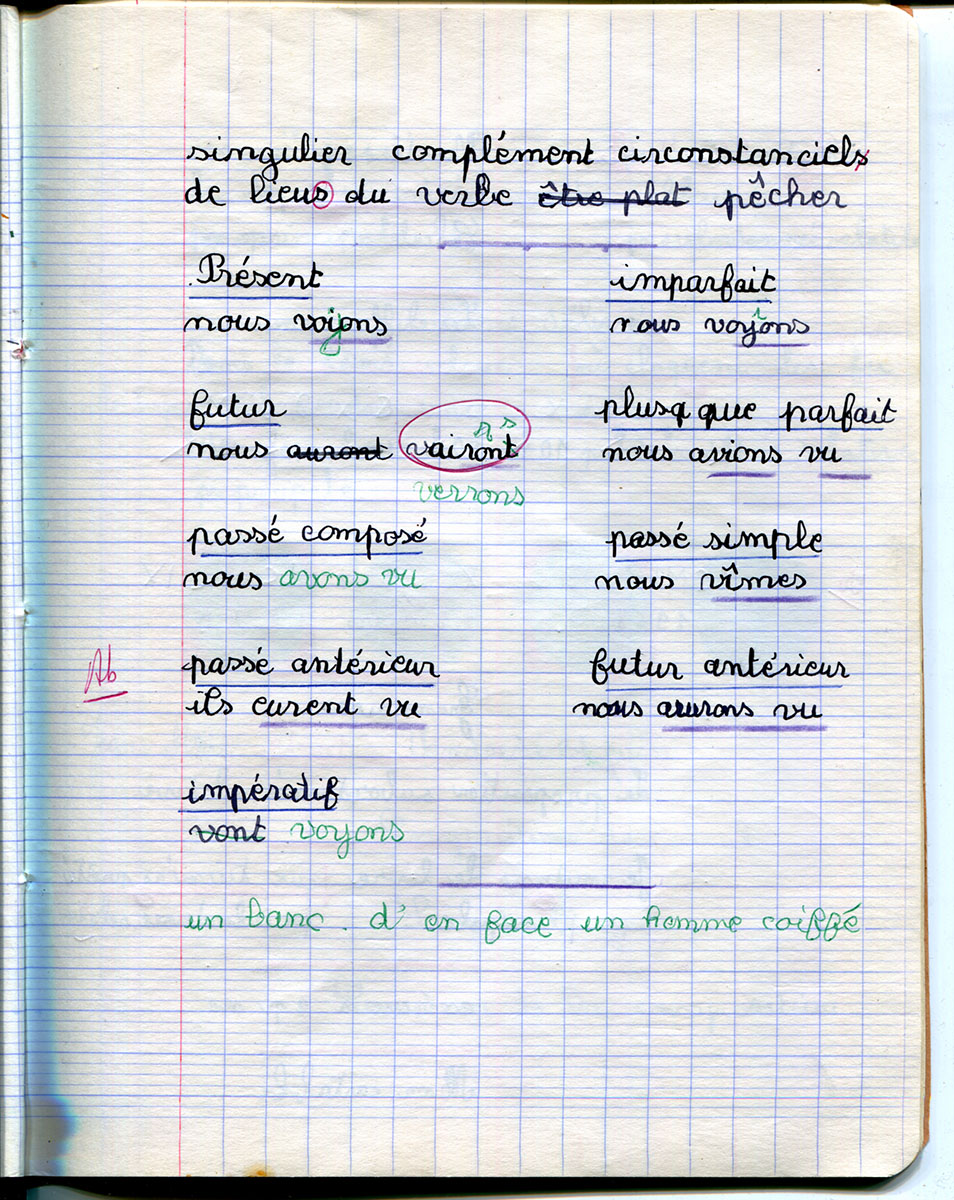 singulier complément circonstanciels
de lieus du verbe être plat pêcher
Présent
nous voyons
imparfait
nous voyions
futur
nous auront vairont
rs
verrons
plusq que parfait
nous avions vu
passé composé
nous avons vu
passé simple
nous vîmes
Ab
passé antérieur
ils eurent vu
futur antérieur
nous aurons vu
impératif
vont voyons
un banc. d'en face un homme coiffé